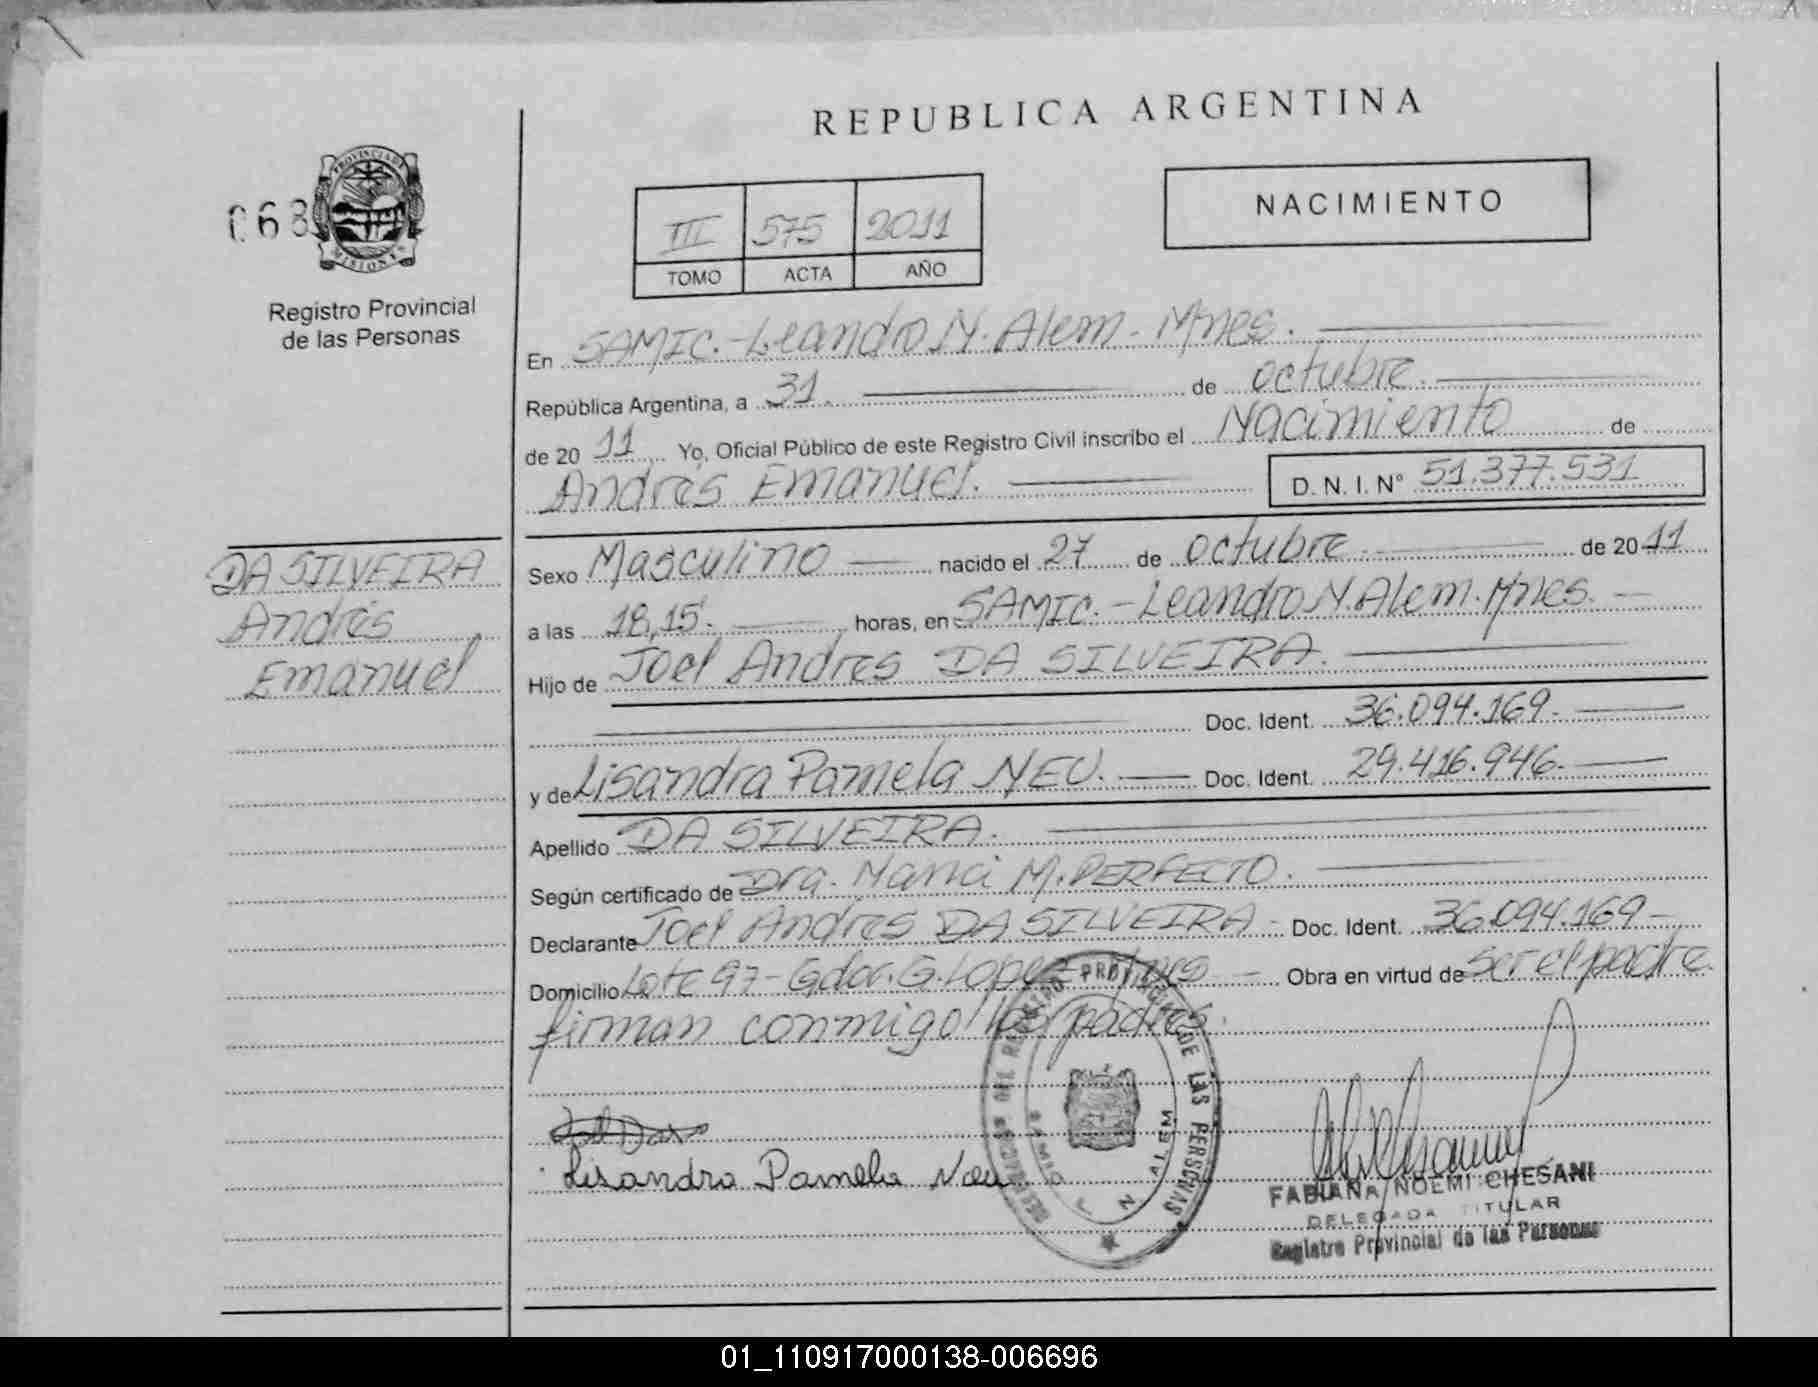 REPUBLICA ARGENTINA
068
PROVINCIA DE MISIONES
Registro Provincial
de las Personas
NACIMIENTO
III 575 2011
TOMO ACTA AÑO
En SAMIC.-Leandro N. Alem - Mnes.
República Argentina, a 31. de octubre.
de 20 11 Yo, Oficial Público de este Registro Civil inscribo el Nacimiento de
Andrés Emanuel. D. N. I. N° 51.377.531
DA SILVEIRA
Andrés
Emanuel
Sexo Masculino nacido el 27 de octubre. de 20 11
a las 18,15. horas, en SAMIC.-Leandro N. Alem. Mnes.
Hijo de Joel Andres DA SILVEIRA.
Doc. Ident. 36.094.169.
y de Lisandra Pamela NEU. Doc. Ident. 29.416.946.
Apellido DA SILVEIRA.
Según certificado de Dra. Nanci M. PERFECTO.
Declarante Joel Andres DA SILVEIRA - Doc. Ident. 36.094.169-
Domicilio Lote 97 - Gdor. G. Lopez - Mnes - Obra en virtud de ser el padre.
firman conmigo los padres.
DEL REGISTRO PROVINCIAL DE LAS PERSONAS
SAMIC L N ALEM
Lisandra Pamela Neu
FABIANA NOEMI CHESANI
DELEGADA TITULAR
Registro Provincial de las Personas
01_110917000138-006696